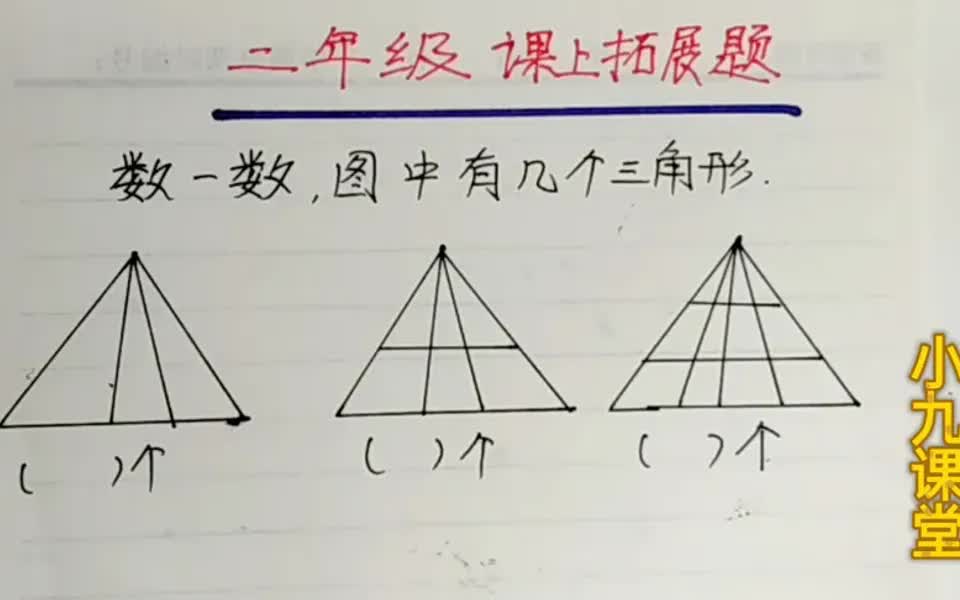 二年级 课上拓展题
数一数,图中有几个三角形.
( )个 ( )个 ( )个
小九课堂